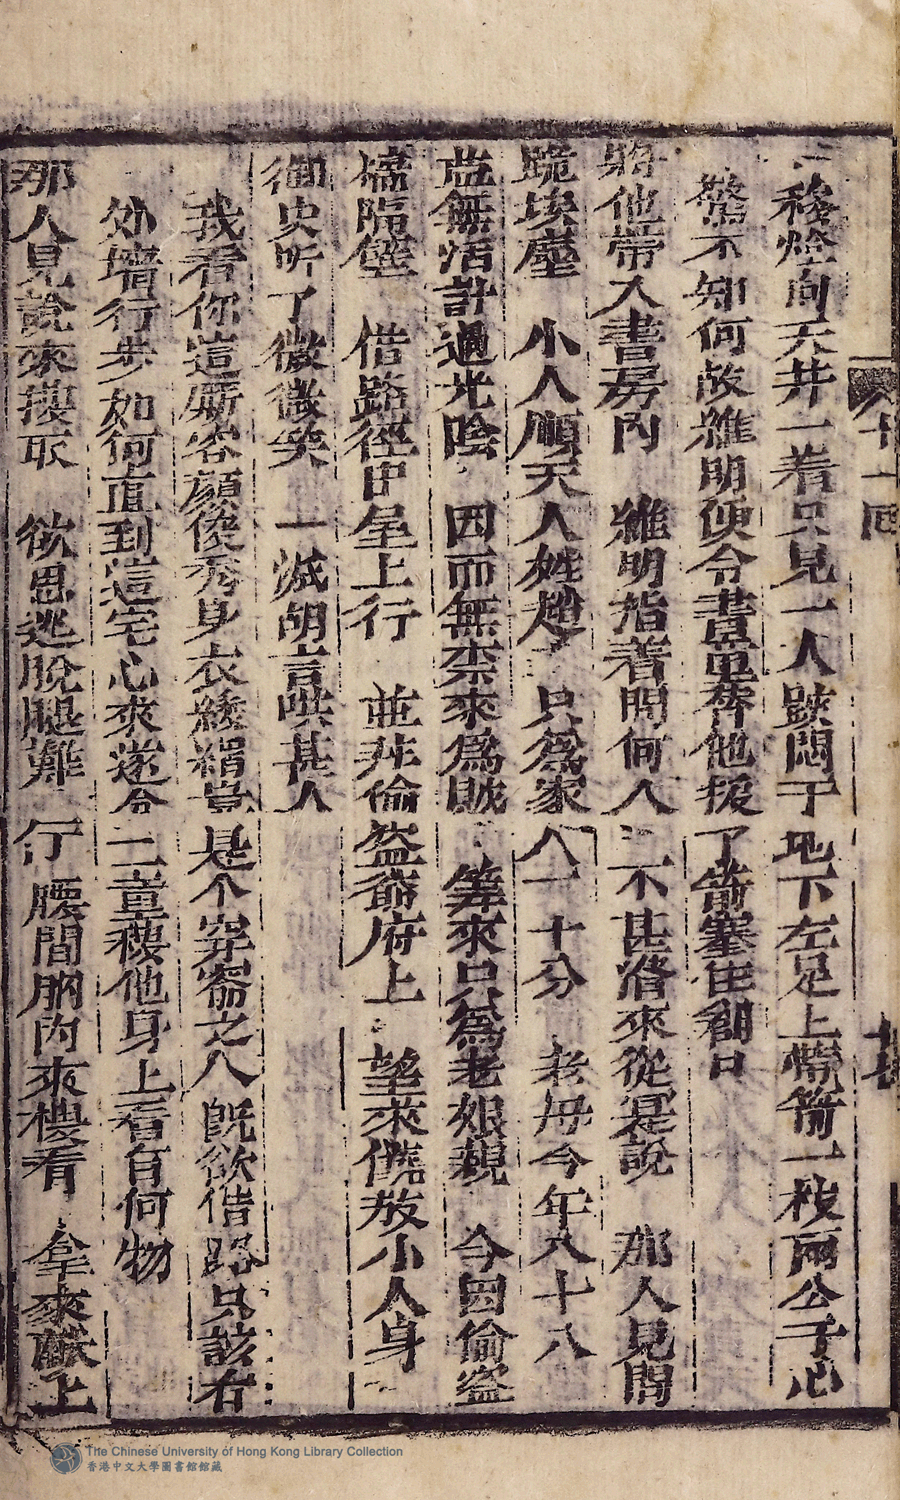 十一回
移燈向天井一着只見一人跌悶于地下左足上帶箭一枝兩公子心
驚不知何故維明便令書童替他拔了箭塞住創口
將他帶入書房內　維明指着問何人　不甚潛來從寔說　那人見問
跪埃塵　小人順天人姓趙　只爲家　八十分　老母今年八十八
並無活計過光陰　因而無柰來爲賊　筭來只爲老娘親　今因偷盜
墻隔壁　借路徑申屋上行　並非偷盜爺府上　望來僥放小人身
御史听了微微笑　一派胡言哄甚人
我看你這廝容顏俊秀身衣綾絹豈是个穿窬之人旣欲借路只該右
外墻行步如何直到這宅心來遂令二童摟他身上看有何物
那人見說來摟取　欲思逃脫腿難行　腰間胸內來摟看　拿來獻上
The Chinese University of Hong Kong Library Collection
香港中文大學圖書館館藏